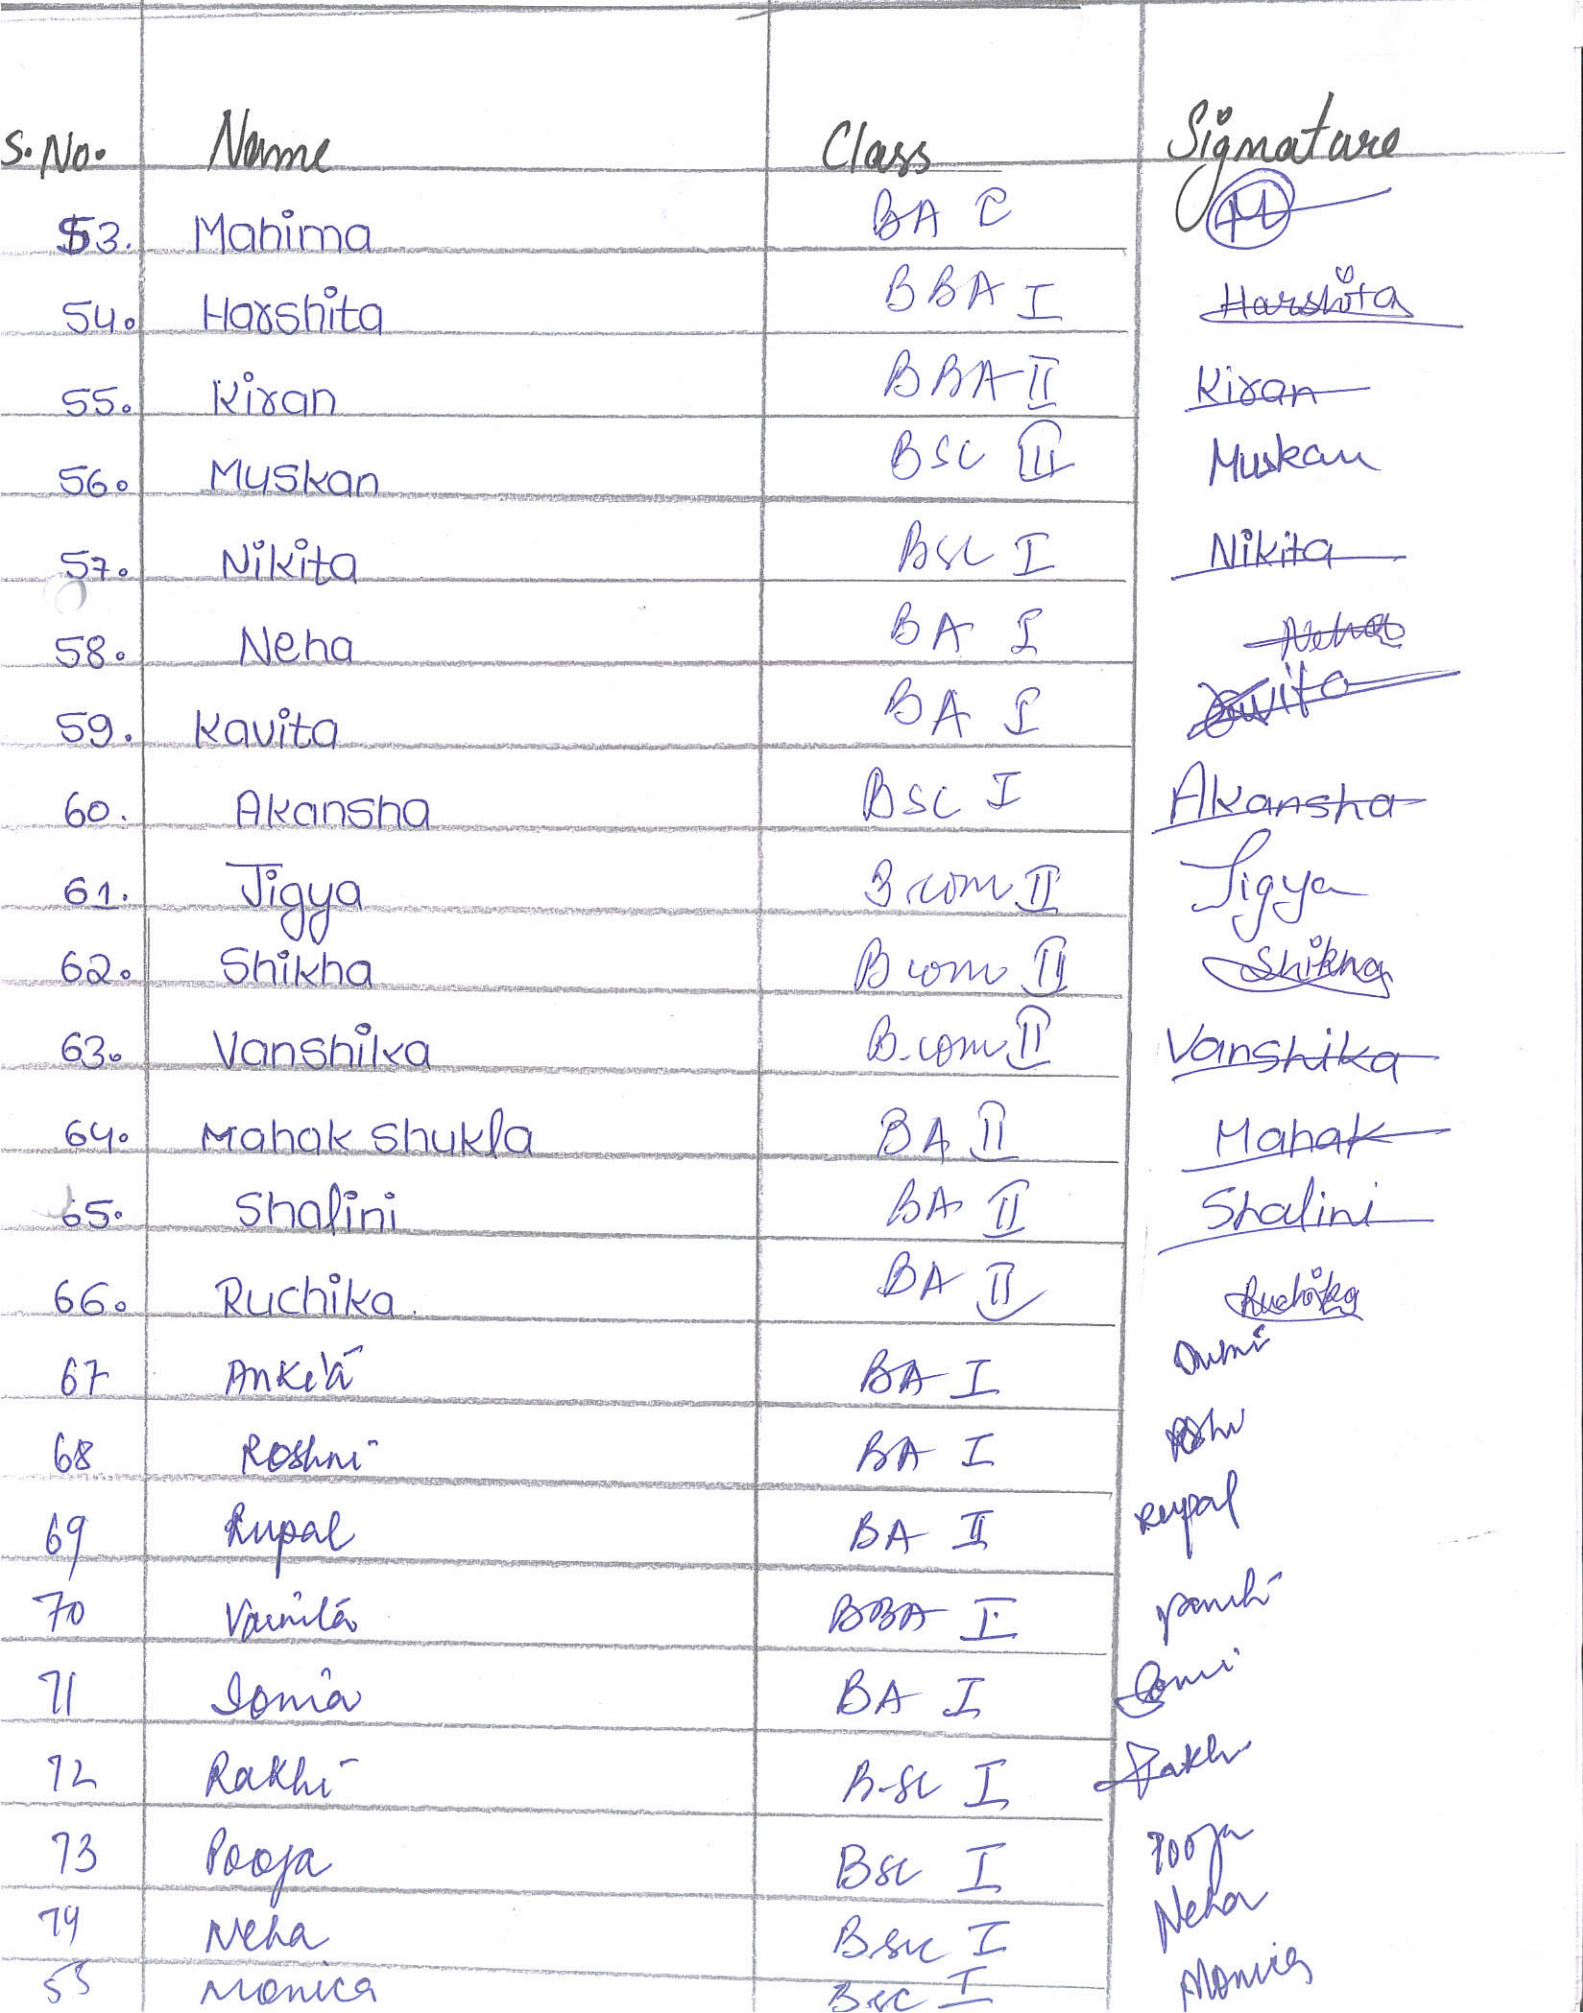 S. No. Name Class Signature
53. Mahima BA C M
54. Harshita BBA I Harshita
55. Kiran BBA II Kiran
56. Muskan BSC II Muskan
57. Nikita BSC I Nikita
58. Neha BA I Neha
59. Kavita BA I
60. Akansha BSC I Akansha
61. Jigya B.com II Jigya
62. Shikha B com II Shikha
63. Vanshika B.com II Vanshika
64. Mahak Shukla BA II Mahak
65. Shalini BA II Shalini
66. Ruchika. BA II Ruchika
67 Ankita BA I
68 Roshni BA I
69 Rupal BA II Rupal
70 BBA I
71 Sonia BA I
72 Rakhi B-Sc I Rakhi
73 Pooja BSc I Pooja
74 Neha BSc I Neha
55 Monica BSc I Monica